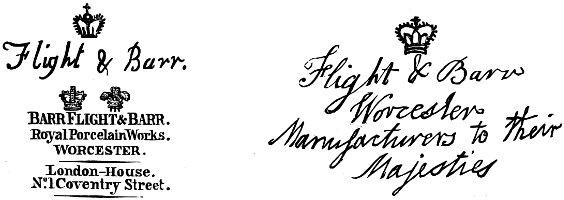 Flight & Barr.
BARR FLIGHT & BARR.
Royal Porcelain Works.
WORCESTER.
London-House.
No. 1 Coventry Street.
Flight & Barr
Worcester
Manufacturers to their
Majesties